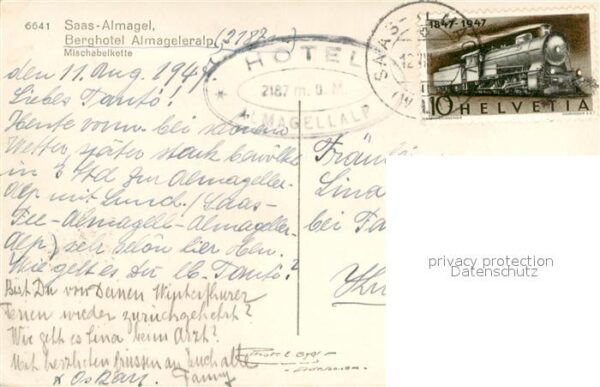 6641 Saas-Almagel,
Berghotel Almageleralp (2182m)
Mischabelkette
den 11. Aug. 1947.
Liebes Tanti!
Heute vorm. bei schönem
Wetter, später stark bewölkt
in 3 Std zur Almageller-
Alp mit Lunch. (Saas-
Fee-Almagell-Almageller-
Alp) sehr schön hier oben.
Wie geht es Dir lb. Tanti?
Bist Du von Deinen Winterthurer
Ferien wieder zurückgekehrt?
Wie geht es Lina beim Arzt?
Mit herzlichen Grüssen an Euch alle
Oskar. Fanny
HOTEL
2187 m. ü. M.
ALMAGELLALP
SAAS-
12
1847-1947
10 HELVETIA
Fräulein
Lina
bei Fa
privacy protection
Datenschutz